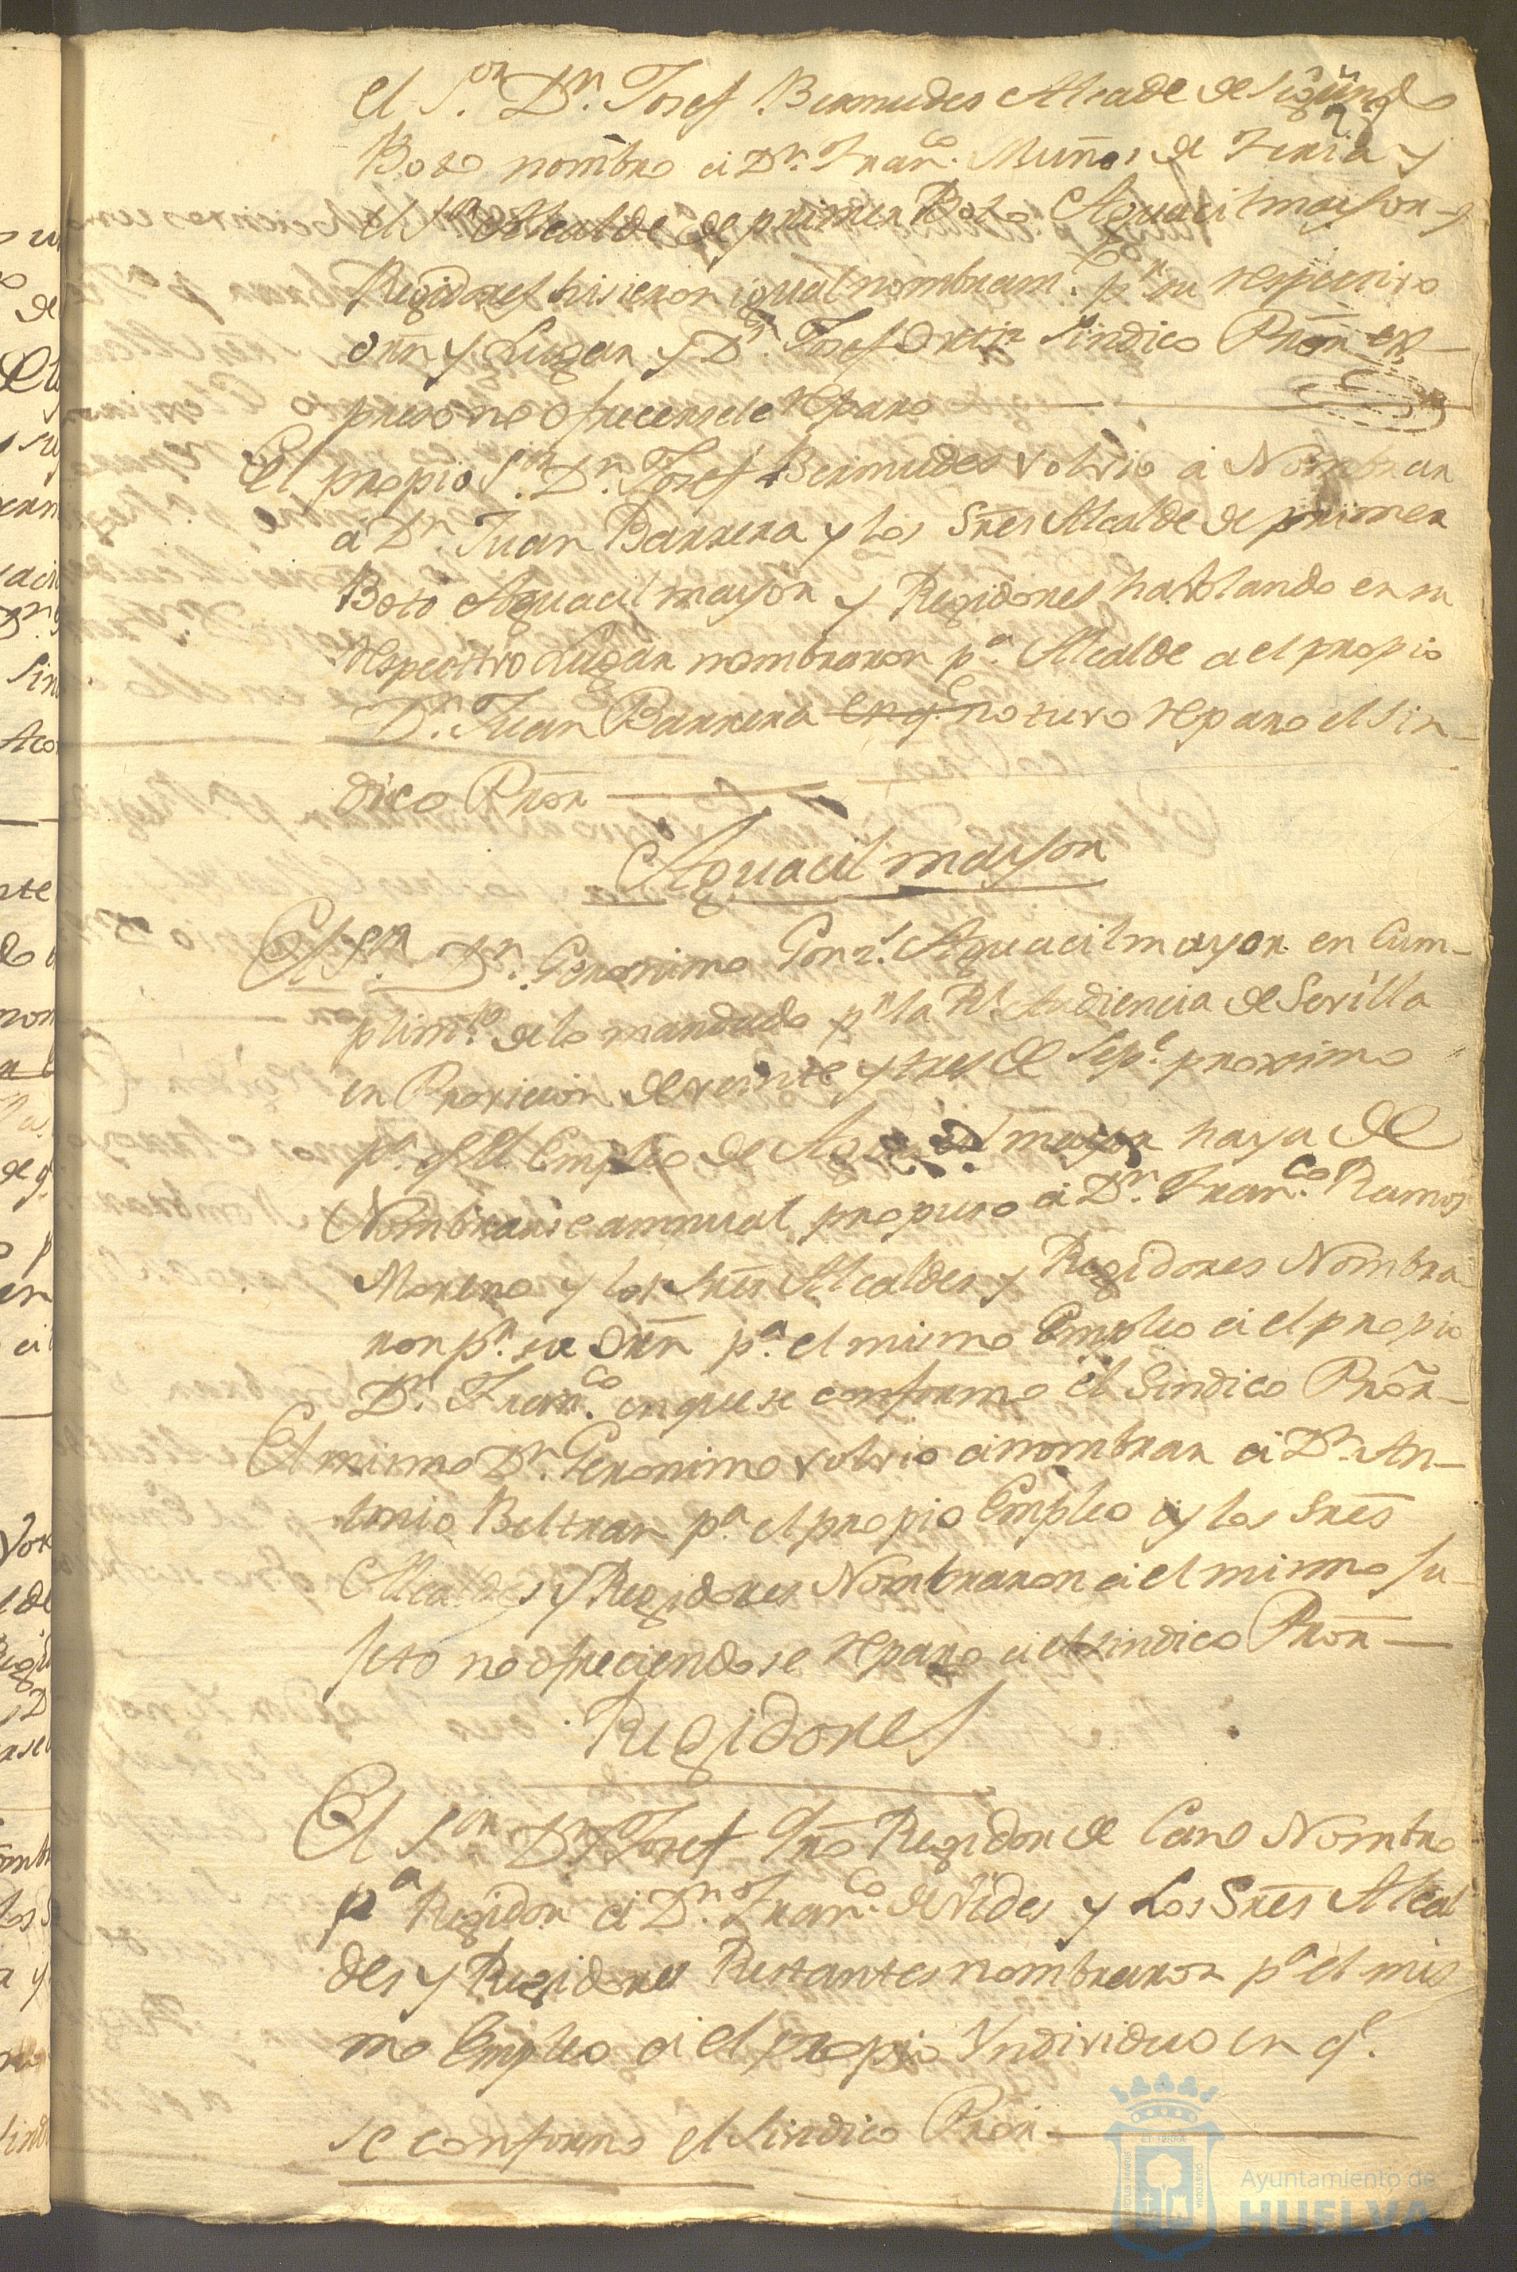 el S.or Dn. Josef Bermudes Alcade de Segundo
Boto nombro a Dn. Franco. Muños de Feria y
el Sr. Alcalde de primer Boto Aguacil mayor y
Regidores hisieron igual nombramto. pr. su respectivo
orn y Lugar y Dn. Josef Ortiz Sindico Pror. ex-
preso no ofrecersele reparo
El propio Sr. Dn. Josef Bermudes volvio a Nombrar
a Dn. Juan Barrera y los Sres Alcalde de primer
Boto Aguacil mayor y Regidores hablando en su
respectivo Lugar nombraron pa. Alcalde a el propio
Dn. Juan Barrera en qe. no tuvo reparo el Sin-
dico Pror
Aguacil mayor
El Sr. Dn. Geronimo Gonz. Aguacil mayor en Cum-
plimto. de lo mandado pr. la Rl. Audiencia de Sevilla
en Provicion de veinte y tres de Sepe. proximo
pa. qe. el Empleo de Aguacil mayor haya de
Nombrarse annual, propuso a Dn. Franco. Ramos
Moreno y los Sres Alcaldes y Regidores Nombra-
ron pr. su Orn pa. el mismo Empleo a el propio
Dn. Franco. en que se conformo el Sindico Pror-
El mismo Dn. Geronimo volvio a nombrar a Dn. An-
tonio Beltran pa. el propio Empleo y los Sres
Alcaldes y Regidores Nombraron a el mismo Su-
jeto no ofreciendose reparo a el Sindico Pror
Regidores
El Sor Dn. Josef Regidor de Cano Nombro
pa Regidor a Dn. Franco. de Vides y Los Sres Alcal
des y Regidores Restantes nombraron pa el mis
mo Empleo a el propio Yndividuo en qe.
se conformo el Sindico Pror.
Ayuntamiento de
HUELVA